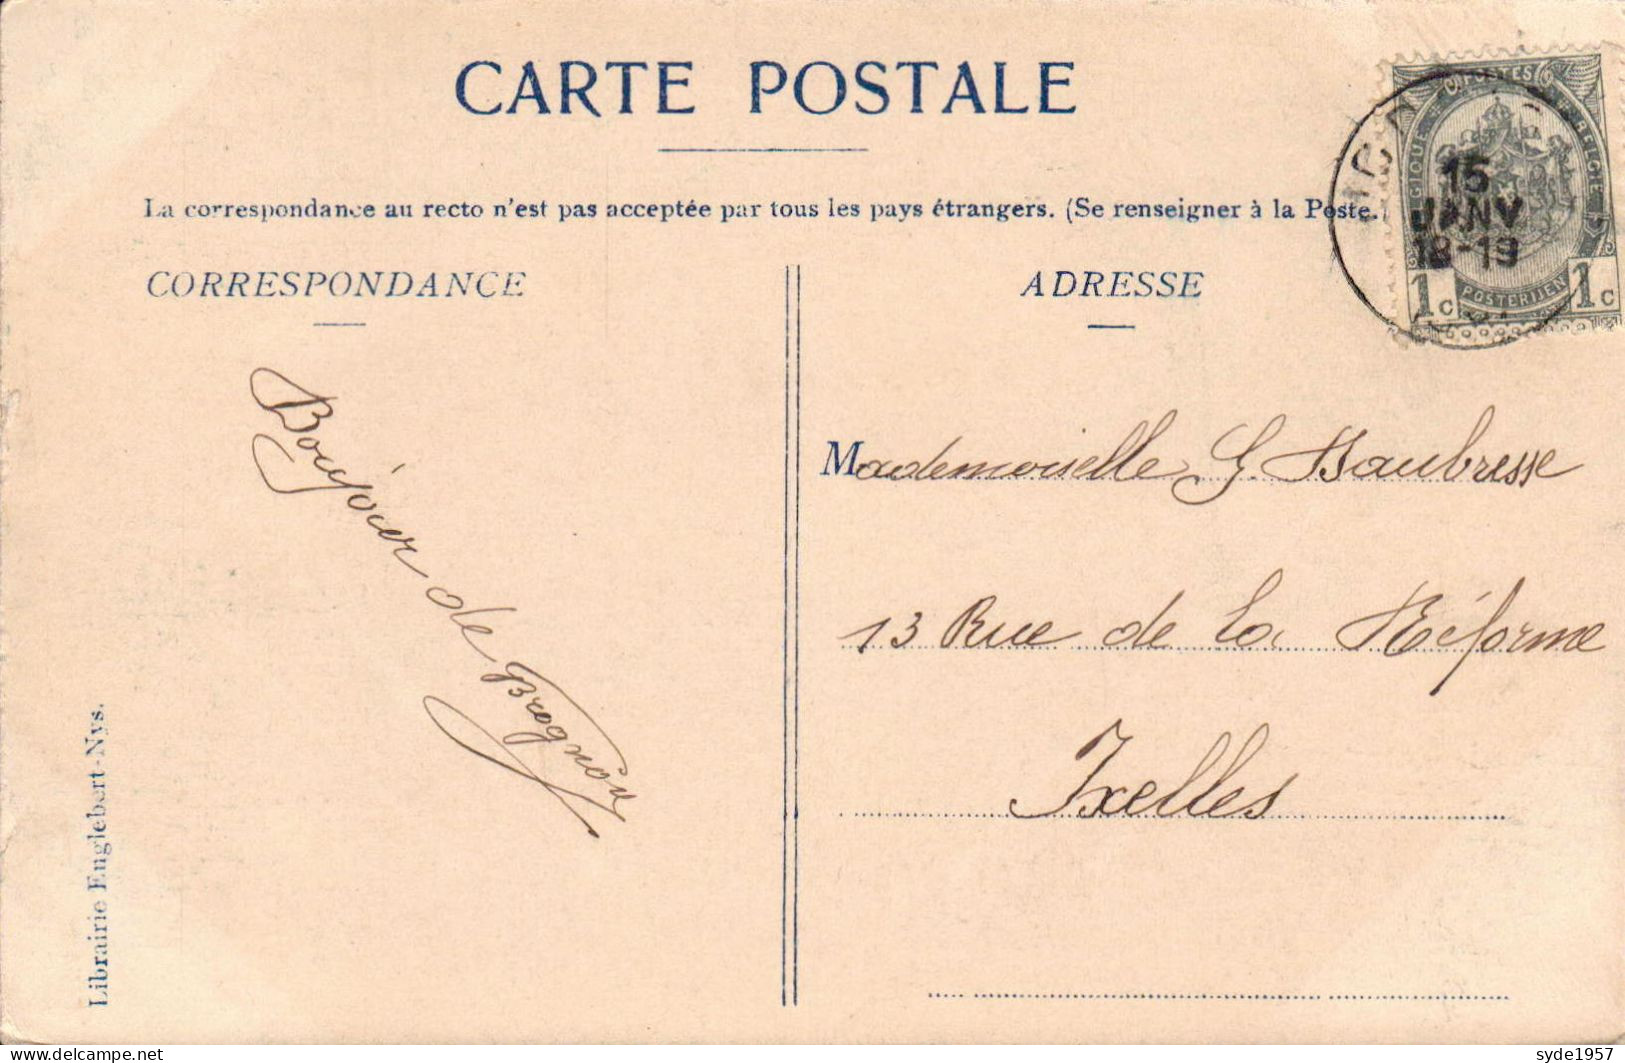 CARTE POSTALE
La correspondance au recto n'est pas acceptée par tous les pays étrangers. (Se renseigner à la Poste.)
CORRESPONDANCE
ADRESSE
15
JANV
18-19
POSTERIJEN
1c 1c
Bonjour de Brognon
Mademoiselle G. Baubresse
13 Rue de la Réforme
Ixelles
Librairie Englebert-Nys.
syde1957